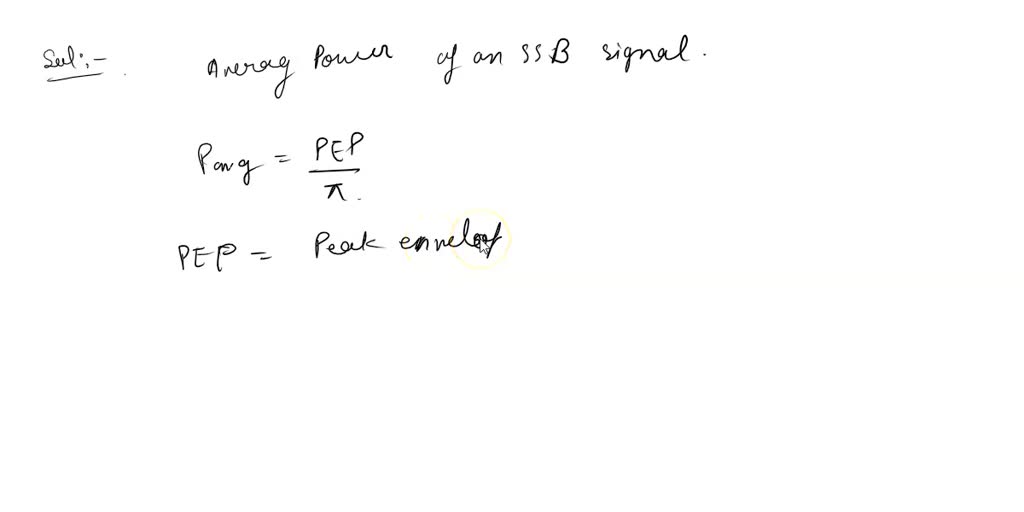 Sol:-
Averag Power of an SSB signal.
Pavg = PEP / π.
PEP = Peak envelop